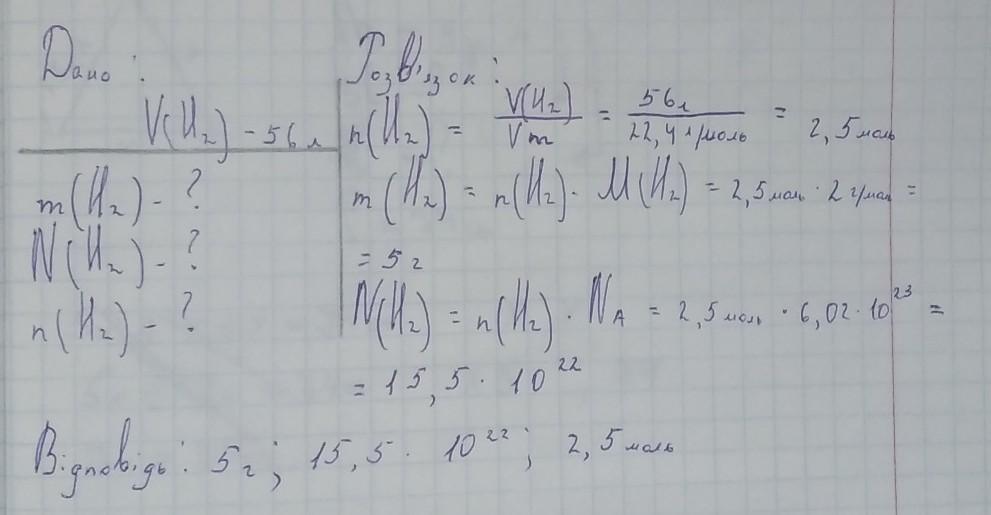 Дано:
V(H₂) - 56 л
m(H₂) - ?
N(H₂) - ?
n(H₂) - ?
Розв'язок:
n(H₂) = V(H₂)/Vm = 56л/22,4 л/моль = 2,5 моль
m(H₂) = n(H₂) · M(H₂) = 2,5 моль · 2 г/моль =
= 5 г
N(H₂) = n(H₂) · N_A = 2,5 моль · 6,02 · 10²³ =
= 15,5 · 10²²
Відповідь: 5 г; 15,5 · 10²²; 2,5 моль